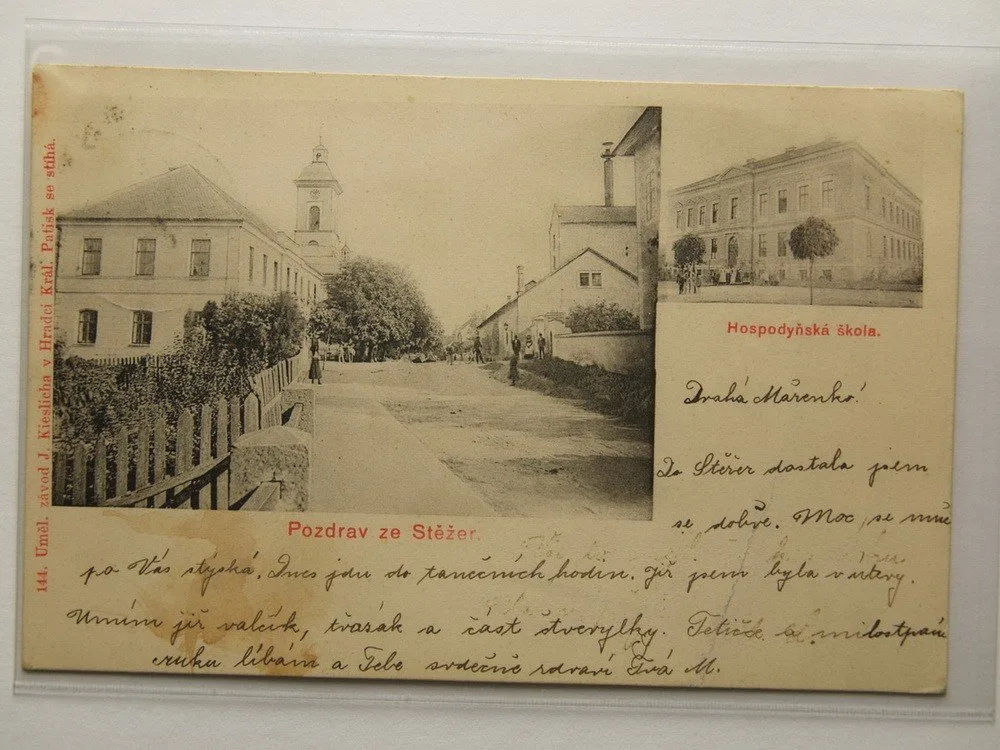 144. Uměl. závod J. Kieslicha v Hradci Král. Patisk se stíhá.
Hospodyňská škola.
Pozdrav ze Stěžer.
Drahá Mařenko!
Do Stěžer dostala jsem
se dobře. Moc se mně
po Vás stýská. Dnes jdu do tanečních hodin. Již jsem byla v úterý.
Umím již valčík, třasák a část čtverylky. Tetičce a milostpaní
ruku líbám a Tebe srdečně zdraví Tvá M.